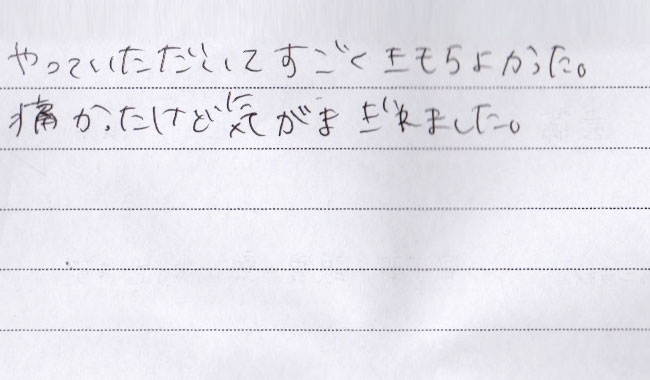 やっていただいてすごくきもちよかった。
痛かったけど気がまぎれました。